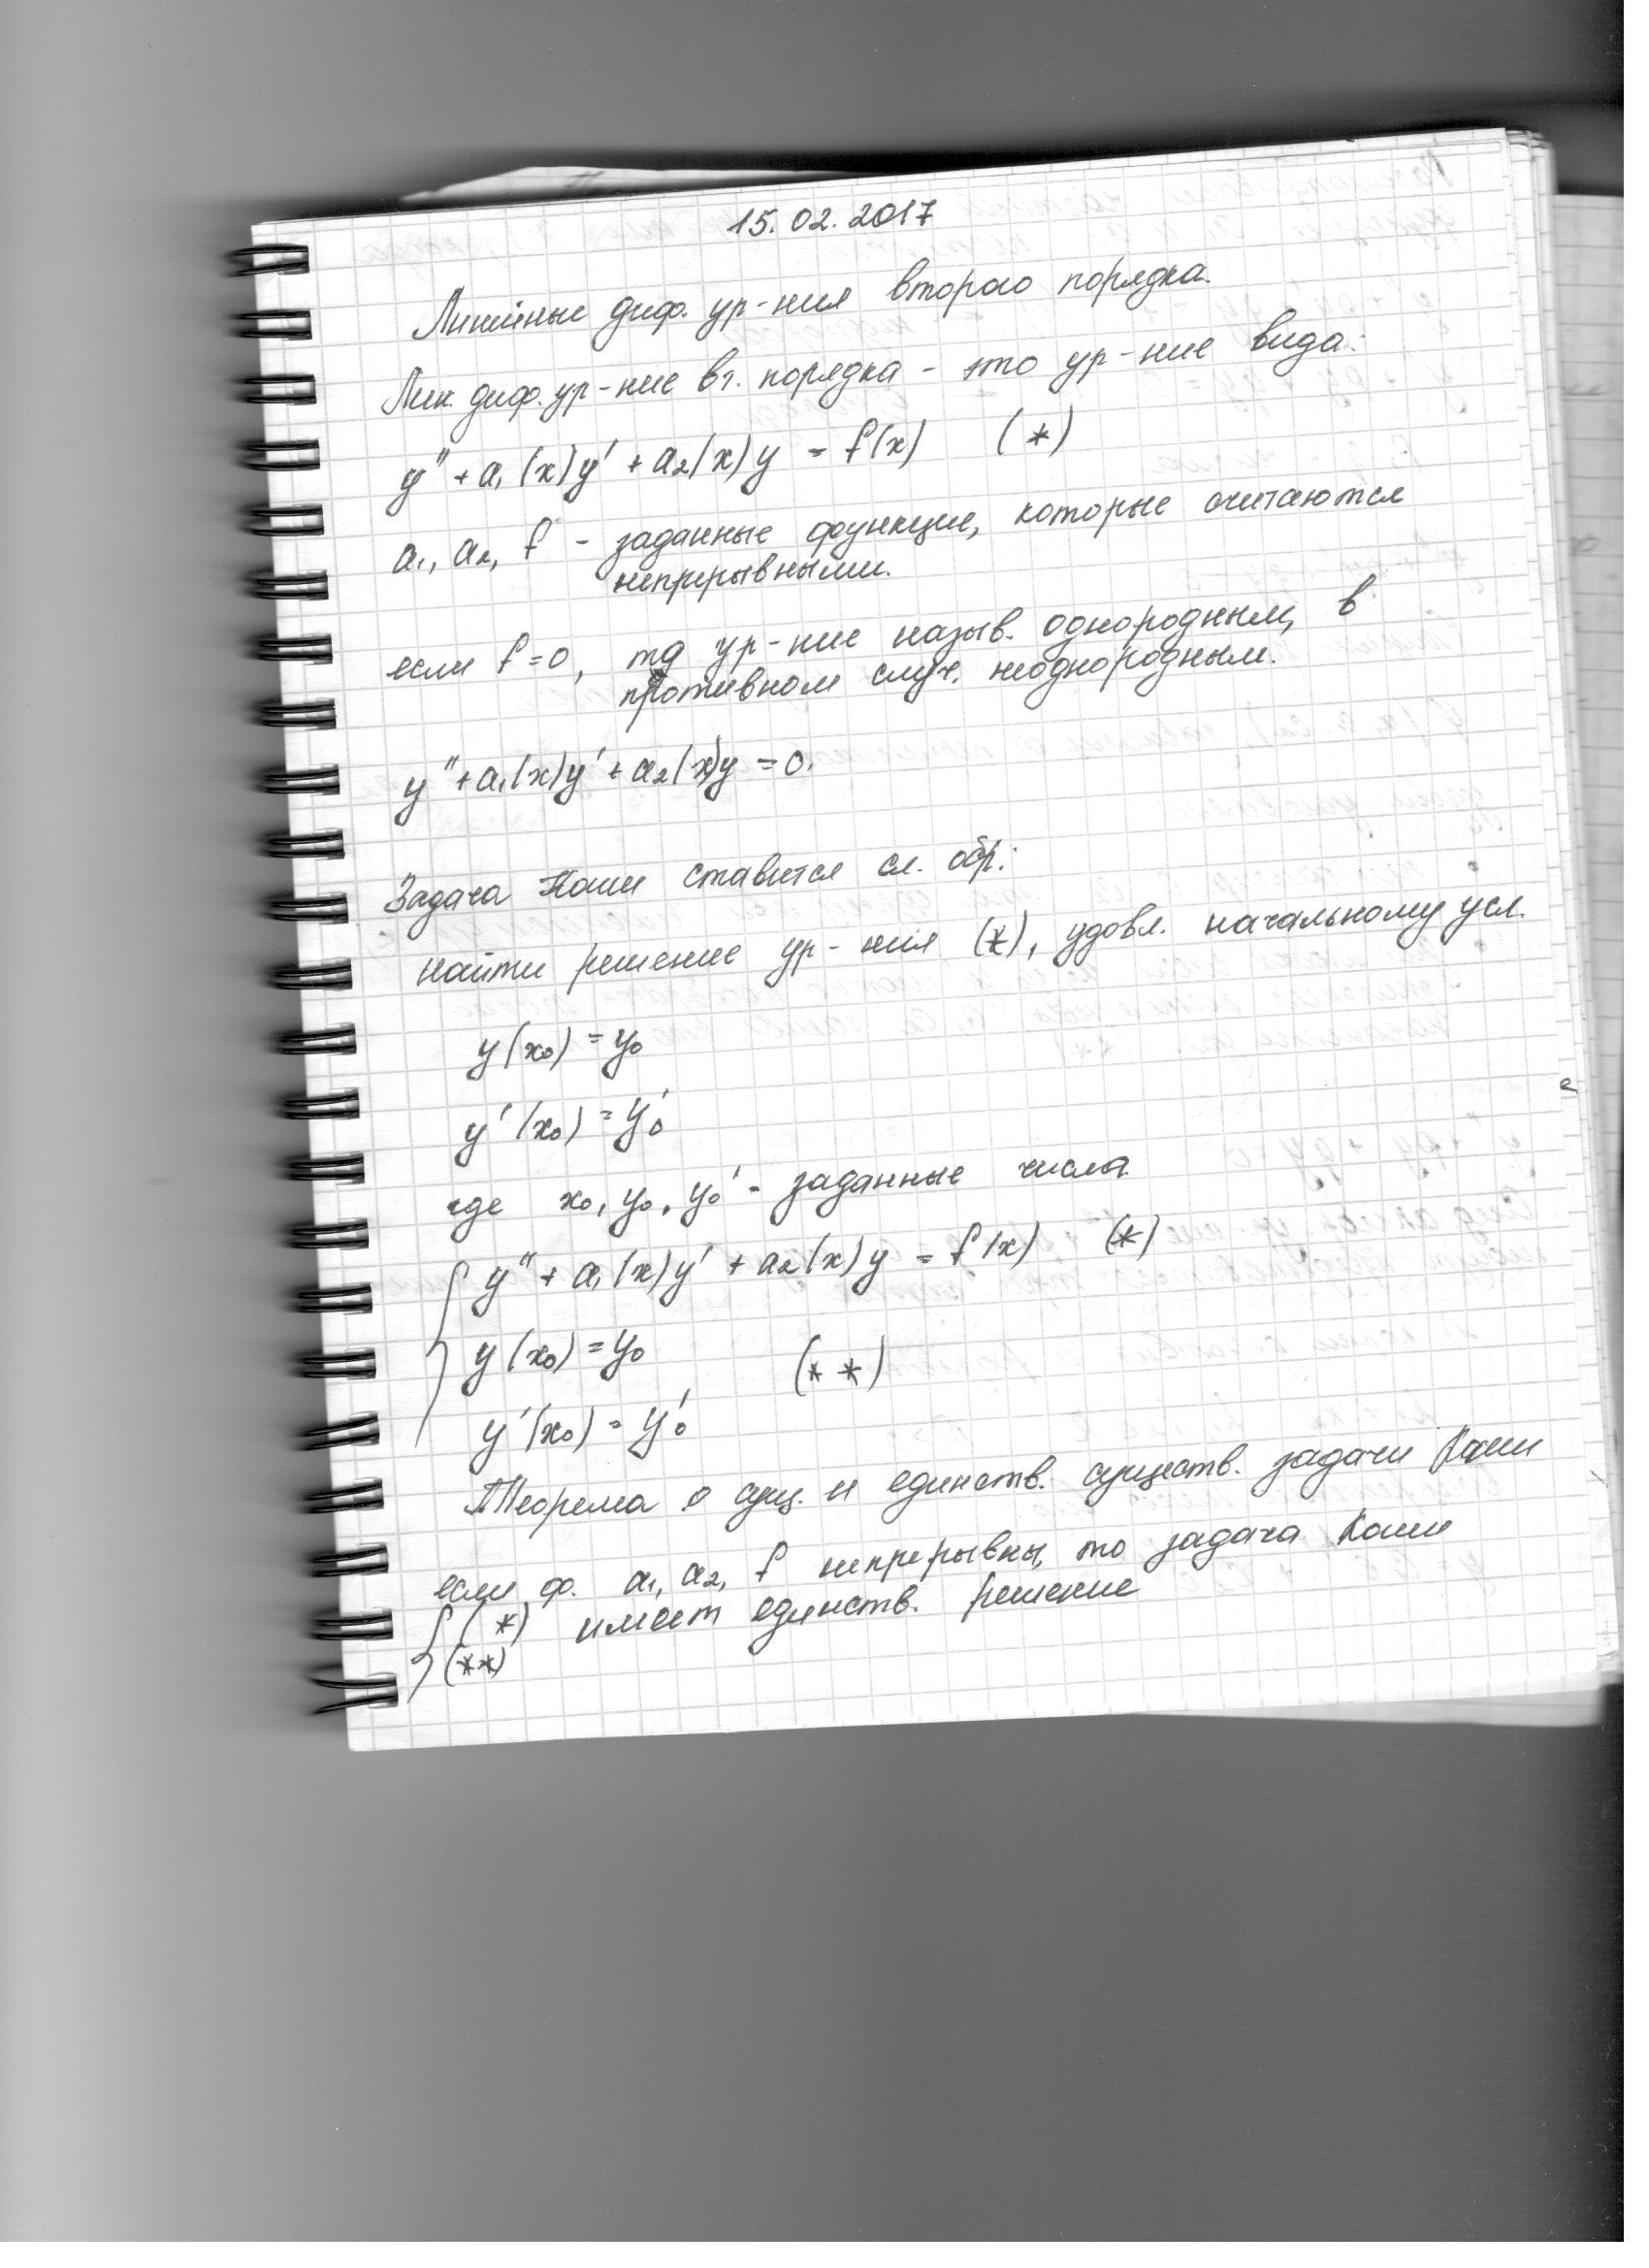 15.02.2017
Линейные диф. ур-ния второго порядка.
Лин. диф. ур-ние вт. порядка - это ур-ние вида:
y'' + a₁(x)y' + a₂(x)y = f(x) (*)
a₁, a₂, f - заданные функции, которые считаются
непрерывными.
если f=0, тд ур-ние назыв. однородным, в
противном случ. неоднородным.
y'' + a₁(x)y' + a₂(x)y = 0.
Задача Коши ставится сл. обр.:
найти решение ур-ния (*), удовл. начальному усл.
y(x₀) = y₀
y'(x₀) = y₀'
где x₀, y₀, y₀' - заданные числа
{ y'' + a₁(x)y' + a₂(x)y = f(x) (*)
y(x₀) = y₀ (**)
y'(x₀) = y₀'
Теорема о сущ. и единств. существ. задачи Коши
если ф. a₁, a₂, f непрерывны, то задача Коши
{ (*) имеет единств. решение
(**)